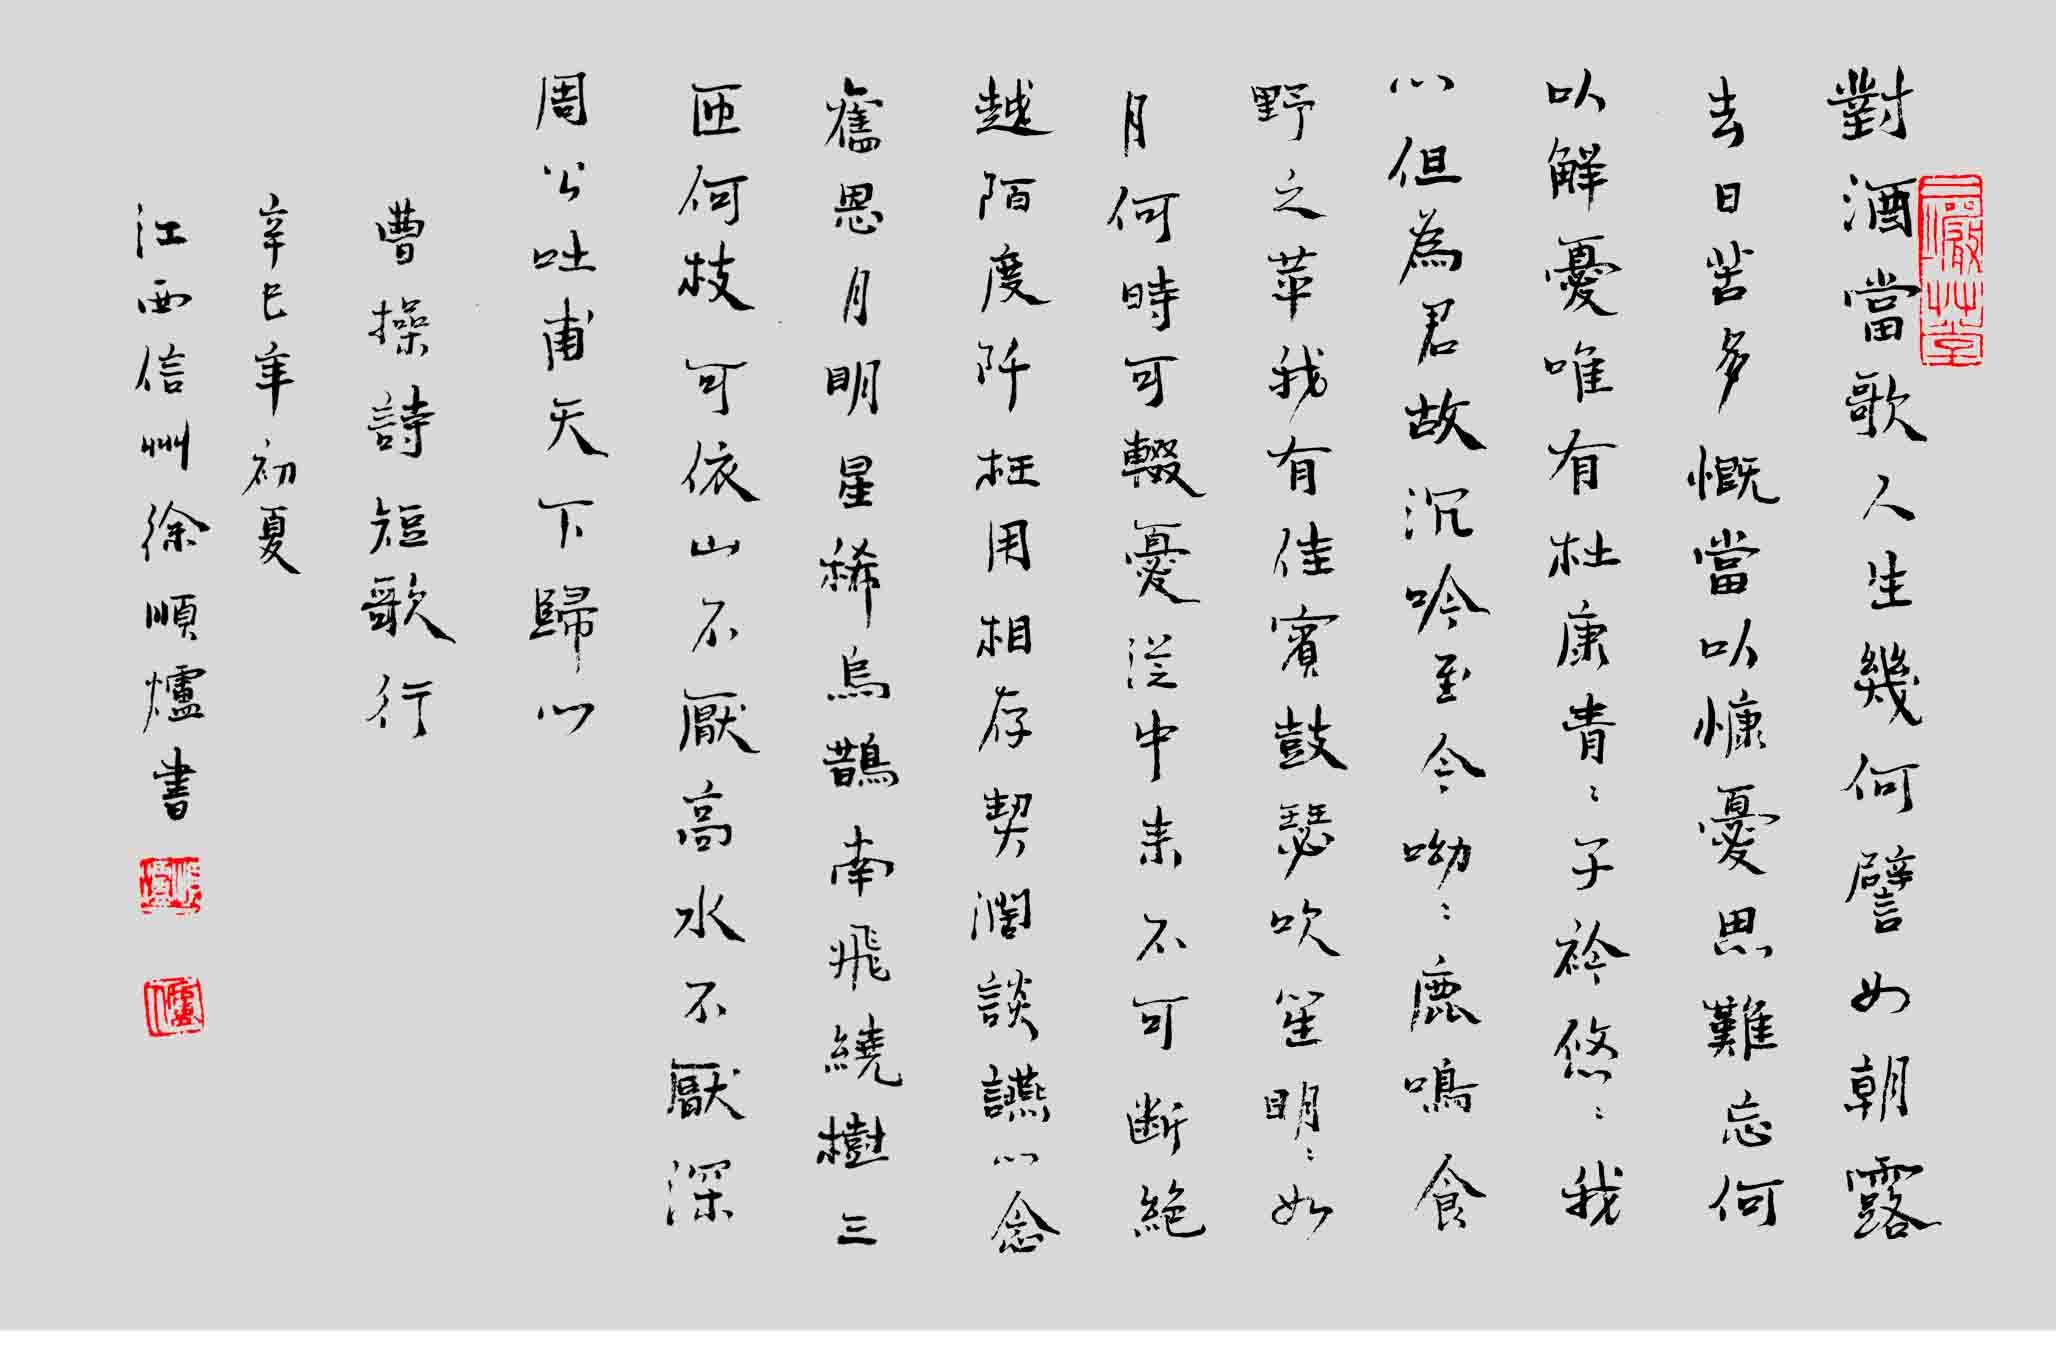 對酒當歌人生幾何譬如朝露
去日苦多慨當以慷憂思難忘何
以解憂唯有杜康青〻子衿悠〻我
心但為君故沉吟至今呦〻鹿鳴食
野之苹我有佳賓鼓瑟吹笙明〻如
月何時可輟憂從中来不可断絶
越陌度阡枉用相存契濶談讌心念
舊恩月明星稀烏鵲南飛繞樹三
匝何枝可依山不厭高水不厭深
周公吐哺天下歸心
曹操詩短歌行
辛巳年初夏
江西信州徐順爐書